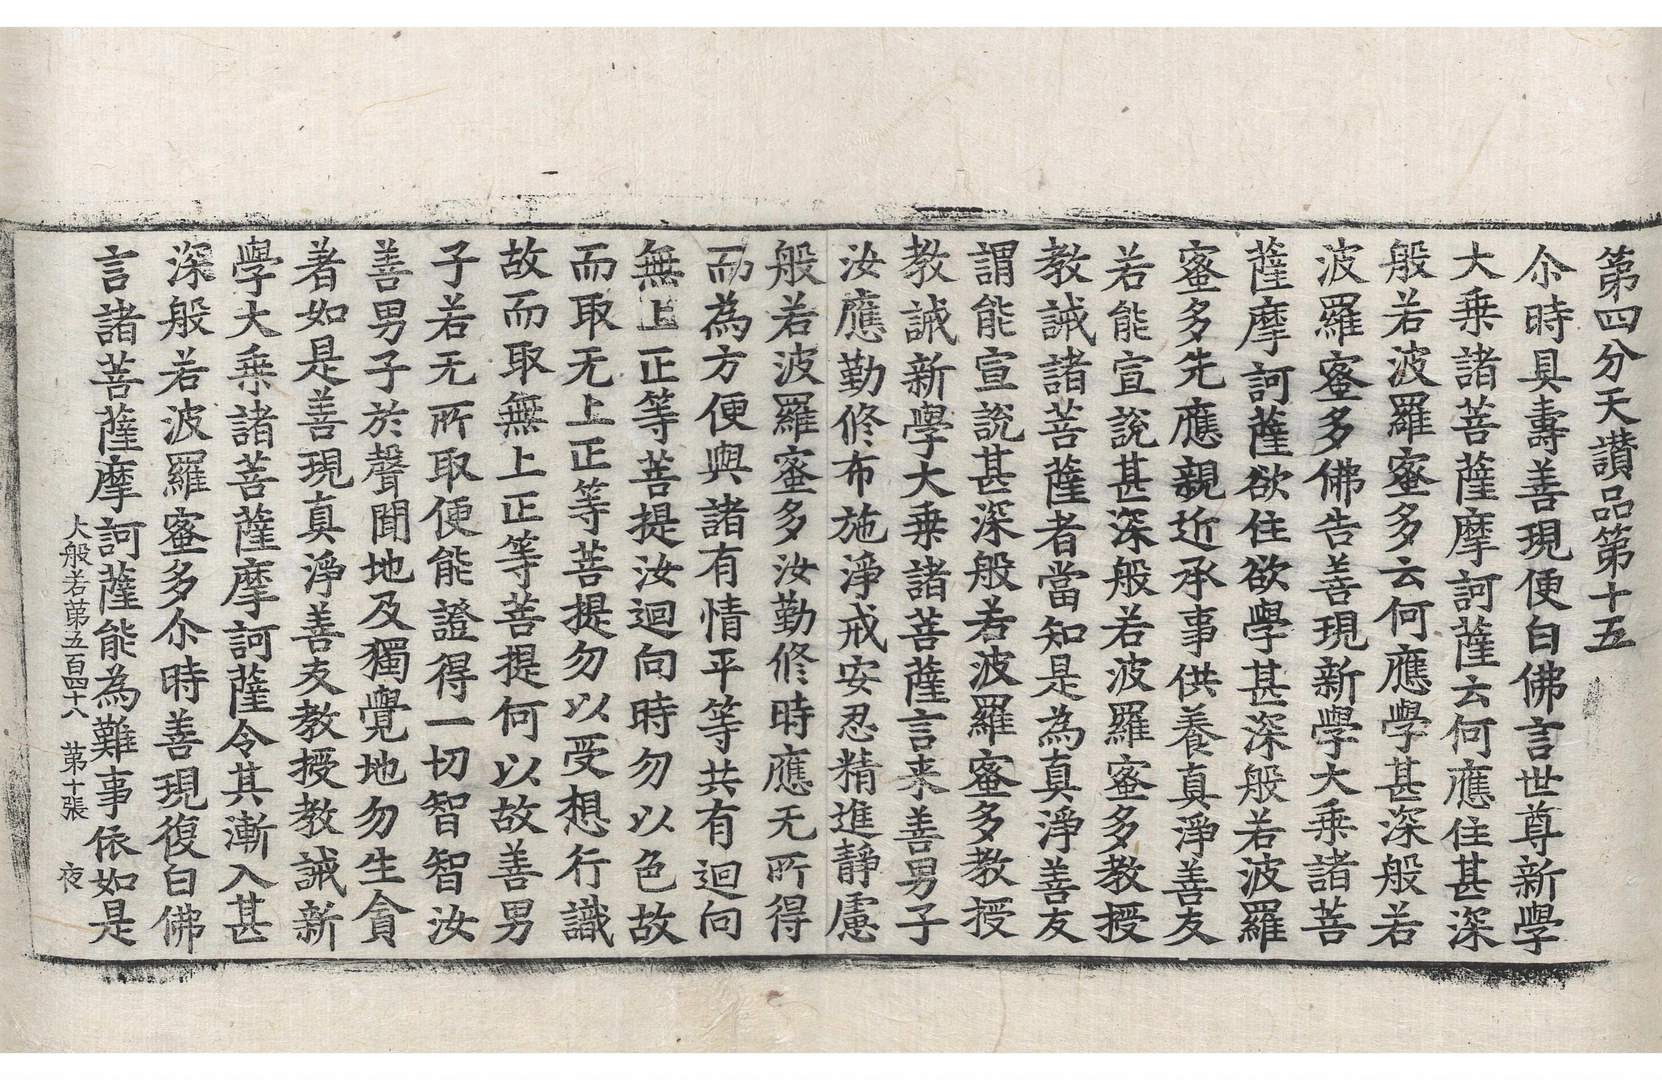 第四分天讚品第十五
尒時具壽善現便白佛言世尊新學
大乗諸菩薩摩訶薩云何應住甚深
般若波羅蜜多云何應學甚深般若
波羅蜜多佛告善現新學大乗諸菩
薩摩訶薩欲住欲學甚深般若波羅
蜜多先應親近承事供養真淨善友
若能宣說甚深般若波羅蜜多教授
教誡諸菩薩者當知是為真淨善友
謂能宣說甚深般若波羅蜜多教授
教誡新學大乗諸菩薩言来善男子
汝應勤修布施淨戒安忍精進靜慮
般若波羅蜜多汝勤修時應无所得
而為方便與諸有情平等共有迴向
無上正等菩提汝迴向時勿以色故
而取无上正等菩提勿以受想行識
故而取無上正等菩提何以故善男
子若无所取便能證得一切智智汝
善男子於聲聞地及獨覺地勿生貪
著如是善現真淨善友教授教誡新
學大乗諸菩薩摩訶薩令其漸入甚
深般若波羅蜜多尒時善現復白佛
言諸菩薩摩訶薩能為難事依如是
大般若第五百四十八 第十張 夜